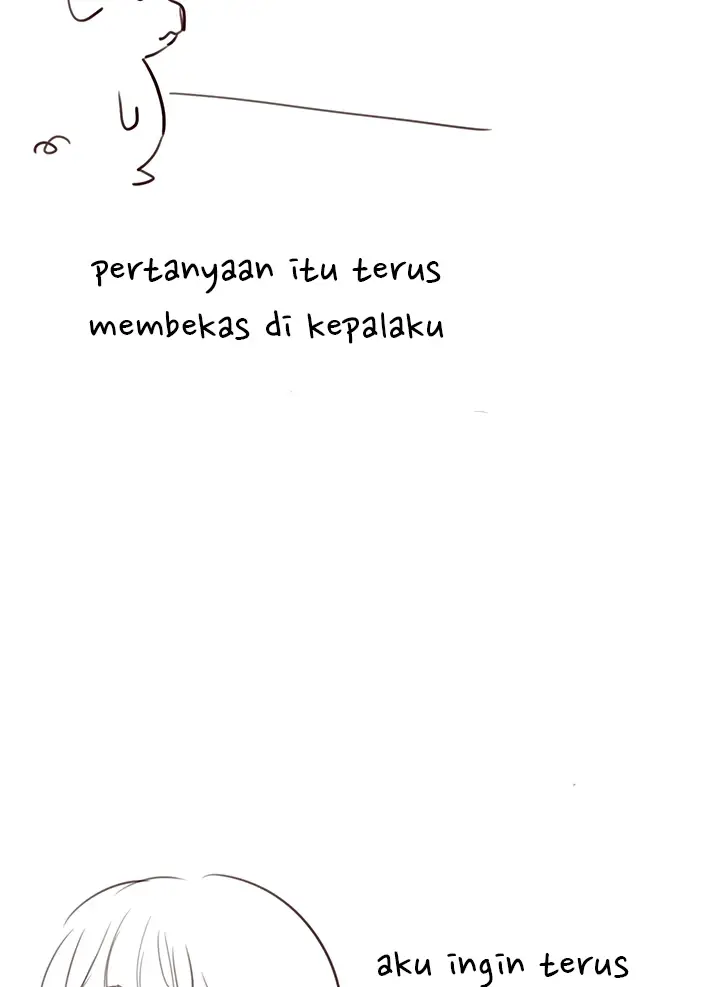 pertanyaan itu terus
membekas di kepalaku
aku ingin terus